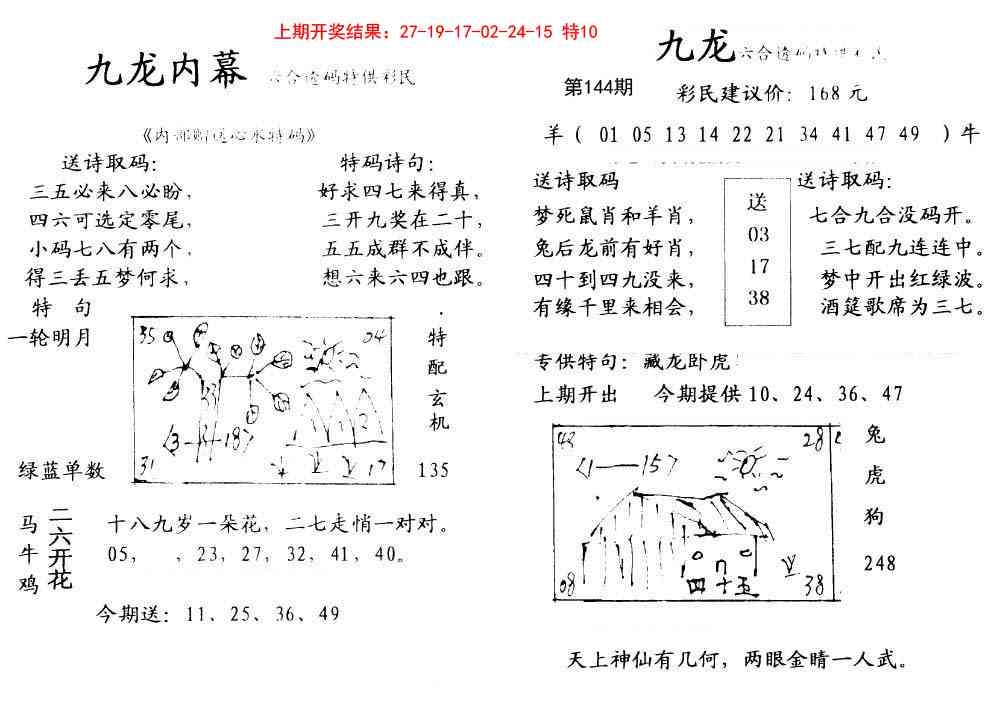 上期开奖结果：27-19-17-02-24-15 特10
九龙内幕 六合透码特供彩民
《内部赠送心水特码》
送诗取码：
三五必来八必盼，
四六可选定零尾，
小码七八有两个，
得三丢五梦何求，
特码诗句：
好求四七来得真，
三开九奖在二十，
五五成群不成伴。
想六来六四也跟。
特 句
一轮明月
绿蓝单数
35 04
23
(3-4-18)
31 17
特
配
玄
机
135
马
牛
鸡
二六开花
十八九岁一朵花，二七走悄一对对。
05， ，23，27，32，41，40。
今期送：11、25、36、49
九龙 六合透码特供
第144期 彩民建议价：168元
羊（ 01 05 13 14 22 21 34 41 47 49 ）牛
送诗取码
梦死鼠肖和羊肖，
兔后龙前有好肖，
四十到四九没来，
有缘千里来相会，
送
03
17
38
送诗取码：
七合九合没码开。
三七配九连连中。
梦中开出红绿波。
酒筵歌席为三七。
专供特句：藏龙卧虎
上期开出 今期提供10、24、36、47
42 28
<1——15>
四十五
08 38
兔
虎
狗
248
天上神仙有几何，两眼金睛一人武。